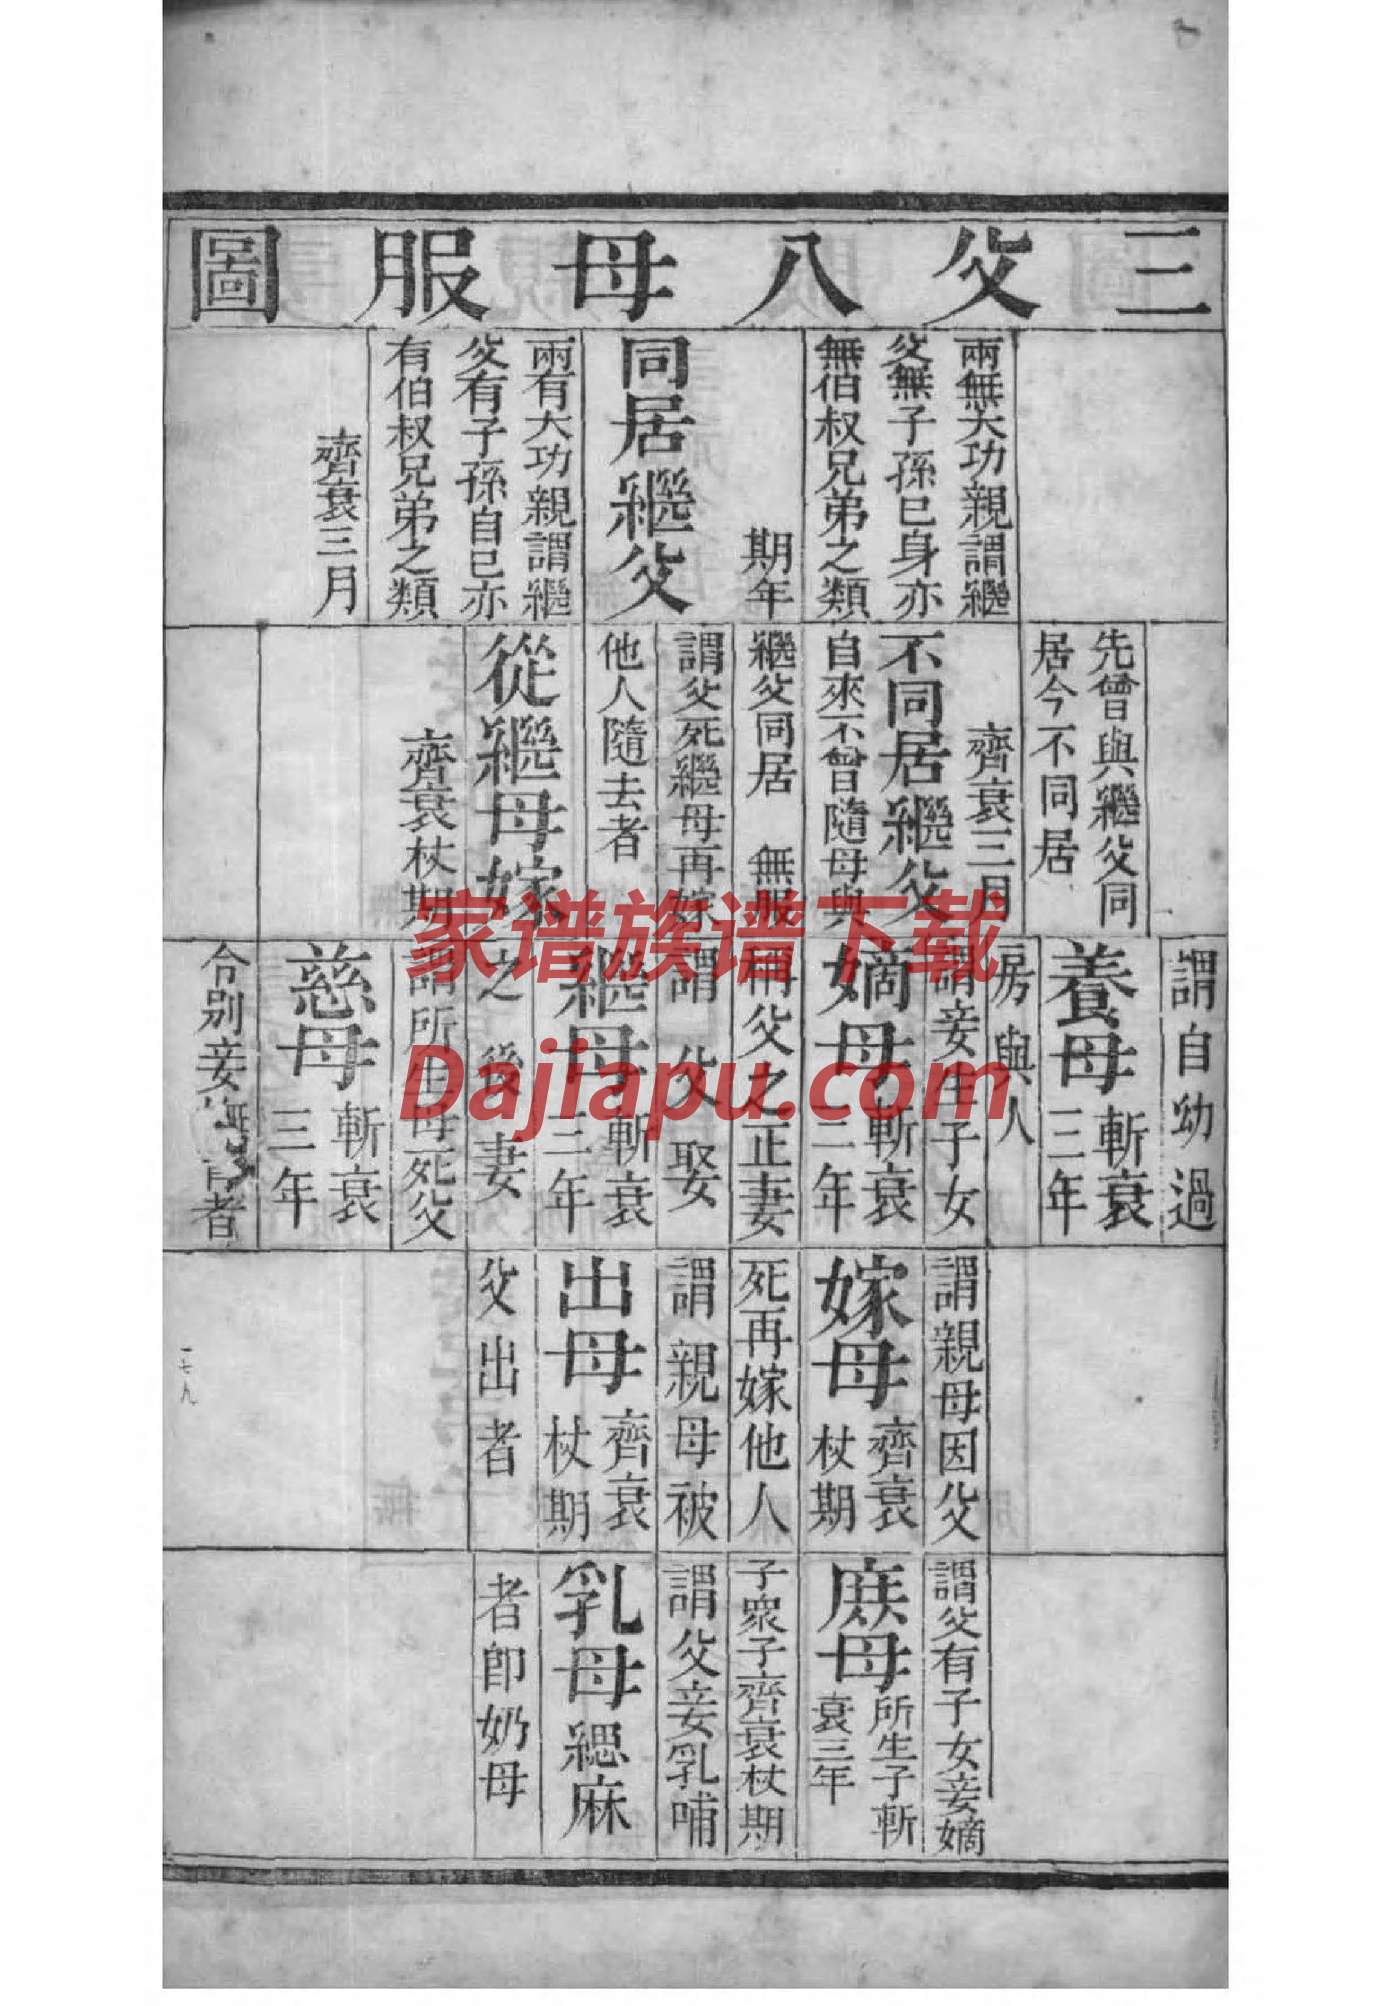 三父八母服圖
兩無大功親謂繼
父無子孫已身亦
無伯叔兄弟之類
期年
同居繼父
兩有大功親謂繼
父有子孫自已亦
有伯叔兄弟之類
齊衰三月
先曾與繼父同
居今不同居
齊衰三月
不同居繼父
自來不曾隨母與
繼父同居 無服
謂父死繼母再嫁
他人隨去者
從繼母嫁
齊衰杖期
謂自幼過
養母
斬衰
三年
房與人
謂妾生子女
嫡母
斬衰
三年
稱父之正妻
謂父娶
繼母
斬衰
三年
之後妻
謂所生母死父
慈母
斬衰
三年
令別妾
者
謂親母因父
嫁母
齊衰
杖期
死再嫁他人
謂親母被
出母
齊衰
杖期
父出者
一七九
謂父有子女妾嫡
庶母
所生子斬
衰三年
子衆子齊衰杖期
謂父妾乳哺
乳母
緦麻
者即奶母
家谱族谱下载
Dajiapu.com